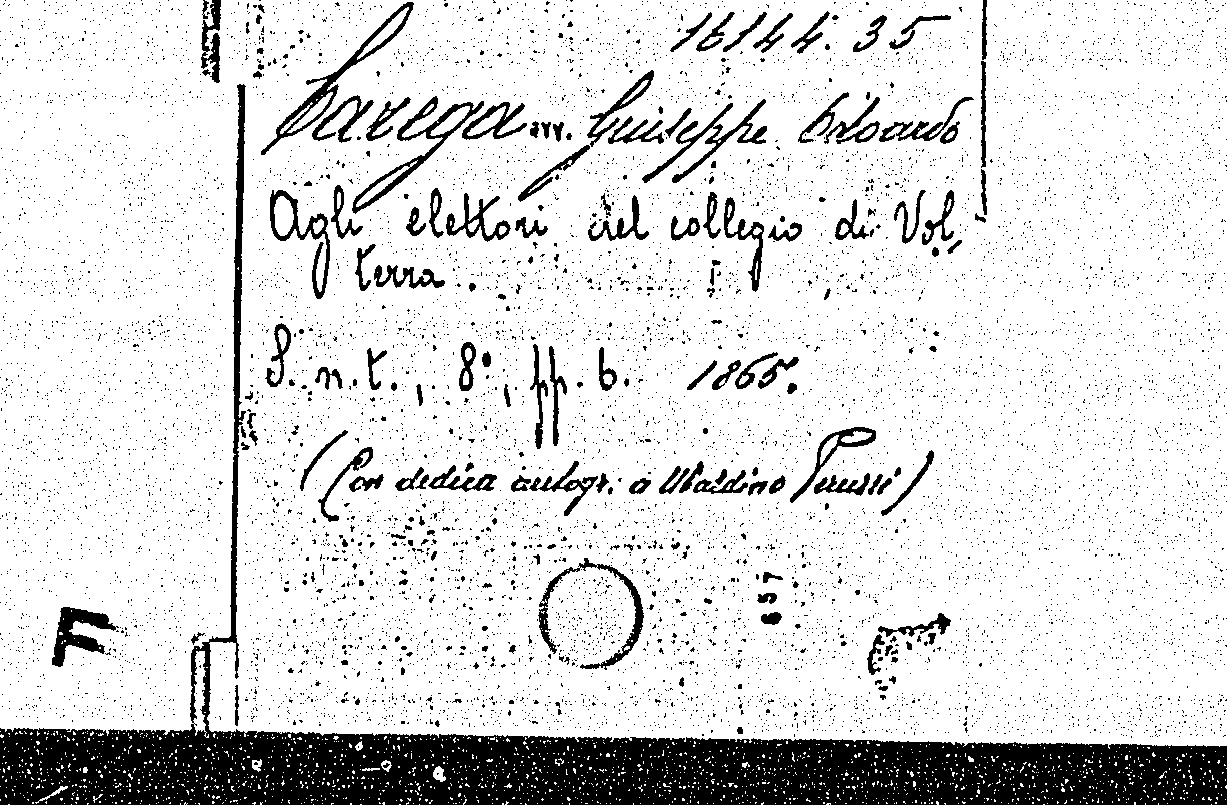 16144.35
Barega avv. Giuseppe Edoardo
Agli elettori del collegio di Vol,
terra.
S. n. t., 8°, pp. 6. 1865.
(Con dedica autogr. a Ubaldino Peruzzi)
657
F